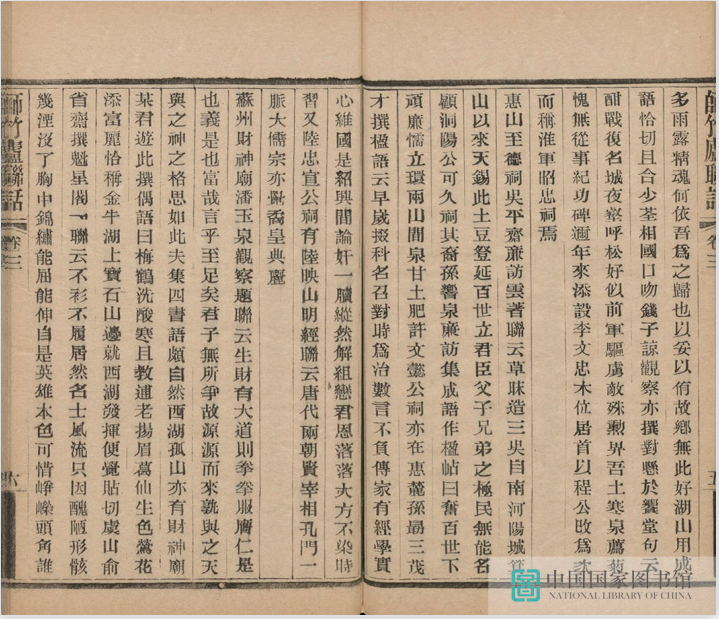 師竹廬聯話 卷三 五
多雨露精魂何依吾爲之歸也以妥以侑故鄉無此好湖山用成
語恰切且合少荃相國口吻錢子諒觀察亦撰對懸於饗堂句云
酣戰復名城夜寮呼松好似前軍驅虜敵殊勲界吾土寒泉薦菊
愧無從事紀功碑邇年來添設李文忠木位居首以程公改爲次
而稱淮軍昭忠祠焉
惠山至德祠吳平齋廉訪雲著聯云草昧造三吳自南河陽城箕
山以來天錫此土豆登延百世立君臣父子兄弟之極民無能名
顧洞陽公可久祠其裔孫響泉廉訪集成語作楹帖曰奮百世下
頑廉懦立環兩山間泉甘土肥許文懿公祠亦在惠麓孫朂三茂
才撰楹語云早歲掇科名召對時爲治數言不負傳家有經學實
心維國是紹興間論奸一牘縱然解組戀君恩落落大方不染時
習又陸忠宣公祠有陸映山明經聯云唐代兩朝賢宰相孔門一
脈大儒宗亦尠喬皇典麗
蘇州財神廟潘玉泉觀察題聯云生財有大道則拳拳服膺仁是
也義是也富哉言乎至足矣君子無所爭故源源而來孰與之天
與之神之格思如此夫集四書語頗自然西湖孤山亦有財神廟
某君遊此撰偶語曰梅鶴洗酸寒且教逋老揚眉葛仙生色鶯花
添富麗恰稱金牛湖上寶石山邊就西湖發揮便覺貼切虞山俞
省齋撰魁星閣一聯云不衫不履居然名士風流只因醜陋形骸
幾湮沒了胸中錦繡能屈能伸自是英雄本色可惜崢嶸頭角誰
師竹廬聯話 卷三 六
中国国家图书馆
NATIONAL LIBRARY OF CHINA